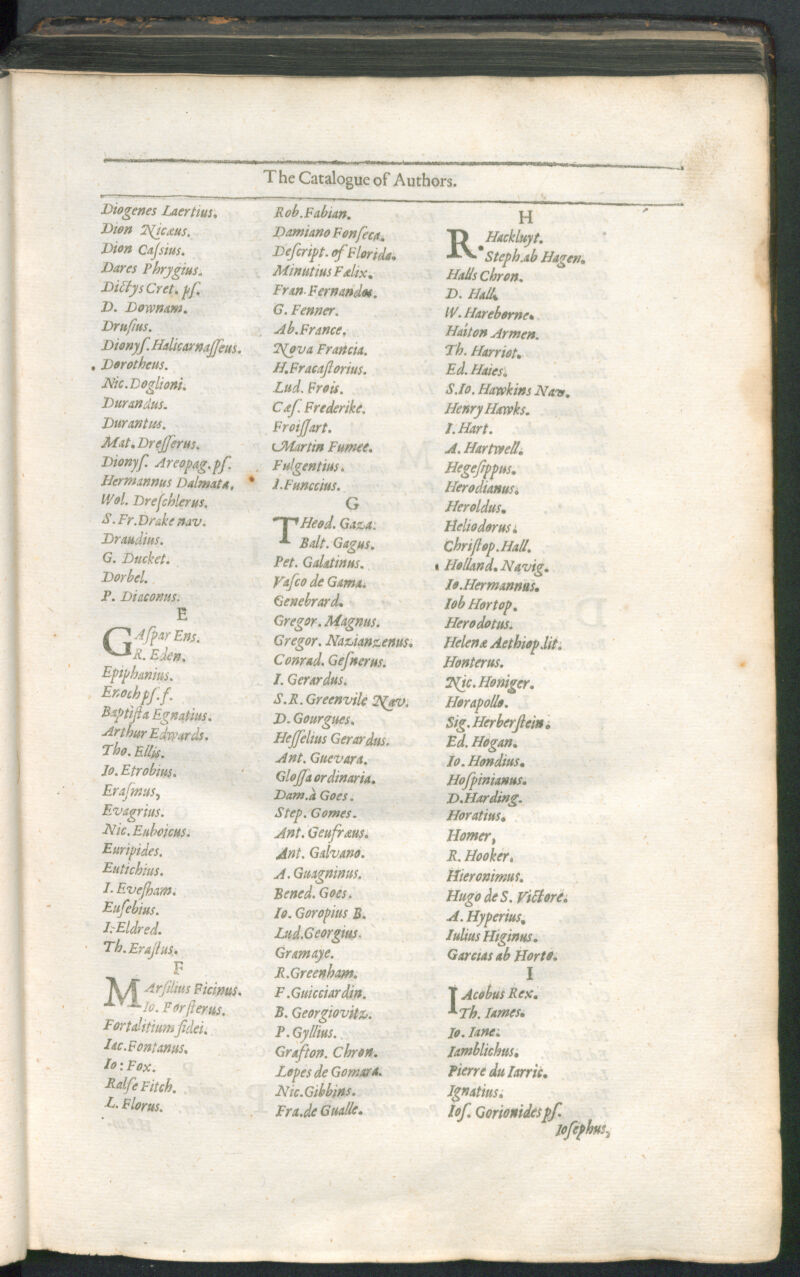 The Catalogue of Authors.
Diogenes Laertius.
Dion Nicæus.
Dion Caſsius.
Dares Phrygius.
Dictys Cret. pſ.
D. Downam.
Druſius.
Dionyſ. Halicarnaſſeus.
Dorotheus.
Nic. Doglioni.
Durandus.
Durantus.
Mat. Dreſſerus.
Dionyſ. Areopag. pſ.
Hermannus Dalmata.
Wol. Dreſchlerus.
S. Fr. Drake nav.
Draudius.
G. Ducket.
Dorbel.
P. Diaconus.
E
GAſpar Ens.
R. Eden.
Epiphanius.
Enoch pſ. f.
Baptiſta Egnatius.
Arthur Edwards.
Tho. Ellis.
Io. Etrobius.
Eraſmus,
Evagrius.
Nic. Euboicus.
Euripides.
Eutichius.
I. Eveſham.
Euſebius.
I. Eldred.
Th. Eraſtus.
F
MArſilius Ficinus.
Io. Forſterus.
Fortalitium fidei.
Iac. Fontanus.
Io: Fox.
Ralfe Fitch.
L. Florus.
Rob. Fabian.
Damiano Fonſeca.
Deſcript. of Florida.
Minutius Fælix.
Fran. Fernandes.
G. Fenner.
Ab. France.
Nova Francia.
H. Fracaſtorius.
Lud. Frois.
Cæſ. Frederike.
Froiſſart.
Martin Fumee.
Fulgentius.
I. Funccius.
G
THeod. Gaza.
Balt. Gagus.
Pet. Galatinus.
Vaſco de Gama.
Genebrard.
Gregor. Magnus.
Gregor. Nazianzenus.
Conrad. Geſnerus.
I. Gerardus.
S. R. Greenvile Nav.
D. Gourgues.
Heſſelius Gerardus.
Ant. Guevara.
Gloſſa ordinaria.
Dam. à Goes.
Step. Gomes.
Ant. Geufræus.
Ant. Galvano.
A. Guagninus.
Bened. Goes.
Io. Goropius B.
Lud. Georgius.
Gramaye.
R. Greenham.
F. Guicciardin.
B. Georgiovitz.
P. Gyllius.
Grafton. Chron.
Lopes de Gomara.
Nic. Gibbins.
Fra. de Gualle.
H
R. Hackluyt.
Steph. ab Hagen.
Halls Chron.
D. Hall.
W. Hareborne.
Haiton Armen.
Th. Harriot.
Ed. Haies.
S. Io. Hawkins Nav.
Henry Hawks.
I. Hart.
A. Hartwell.
Hegeſippus.
Herodianus.
Heroldus.
Heliodorus.
Chriſtop. Hall.
Holland. Navig.
Io. Hermannus.
Iob Hortop.
Herodotus.
Helenæ Aethiop. lit.
Honterus.
Nic. Honiger.
Horapollo.
Sig. Herberſtein.
Ed. Hogan.
Io. Hondius.
Hoſpinianus.
D. Harding.
Horatius.
Homer,
R. Hooker.
Hieronimus.
Hugo de S. Victore.
A. Hyperius.
Iulius Higinus.
Garcias ab Horto.
I
IAcobus Rex.
Th. Iames.
Io. Iane.
Iamblichus.
Pierre du Iarric.
Ignatius.
Ioſ. Gorionides pſ.
Ioſephus,